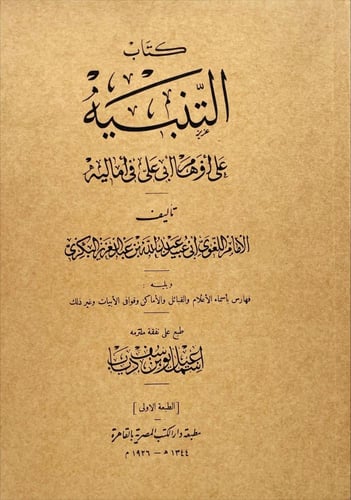 كتاب
التنبيه
على أوهام أبى على فى أماليه
تأليف
الإمام اللغوى أبى عبيد عبد الله بن عبد العزيز البكرى
ويليه :
فهارس بأسماء الأعلام والقبائل والأماكن وقوافى الأبيات وغير ذلك
طبع على نفقة ملتزمه
اسماعيل يوسف دياب
[ الطبعة الأولى ]
مطبعة دار الكتب المصرية بالقاهرة
١٣٤٤ هـ - ١٩٢٦ م